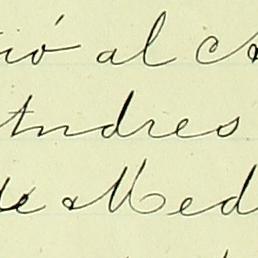 ió al A
Andres
de Med